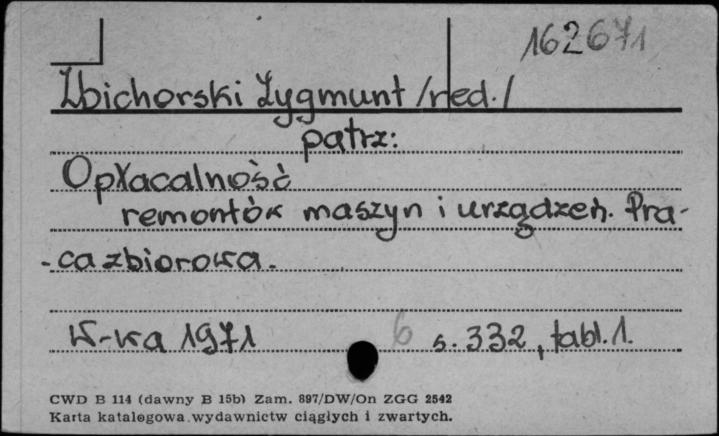 162671
Zbichorski Zygmunt /red./
patrz:
Opłacalność
remontów maszyn i urządzeń. Pra-
-ca zbiorowa.
W-wa 1971 6 s. 332, tabl. 1.
CWD B 114 (dawny B 15b) Zam. 897/DW/On ZGG 2542
Karta katalogowa wydawnictw ciągłych i zwartych.